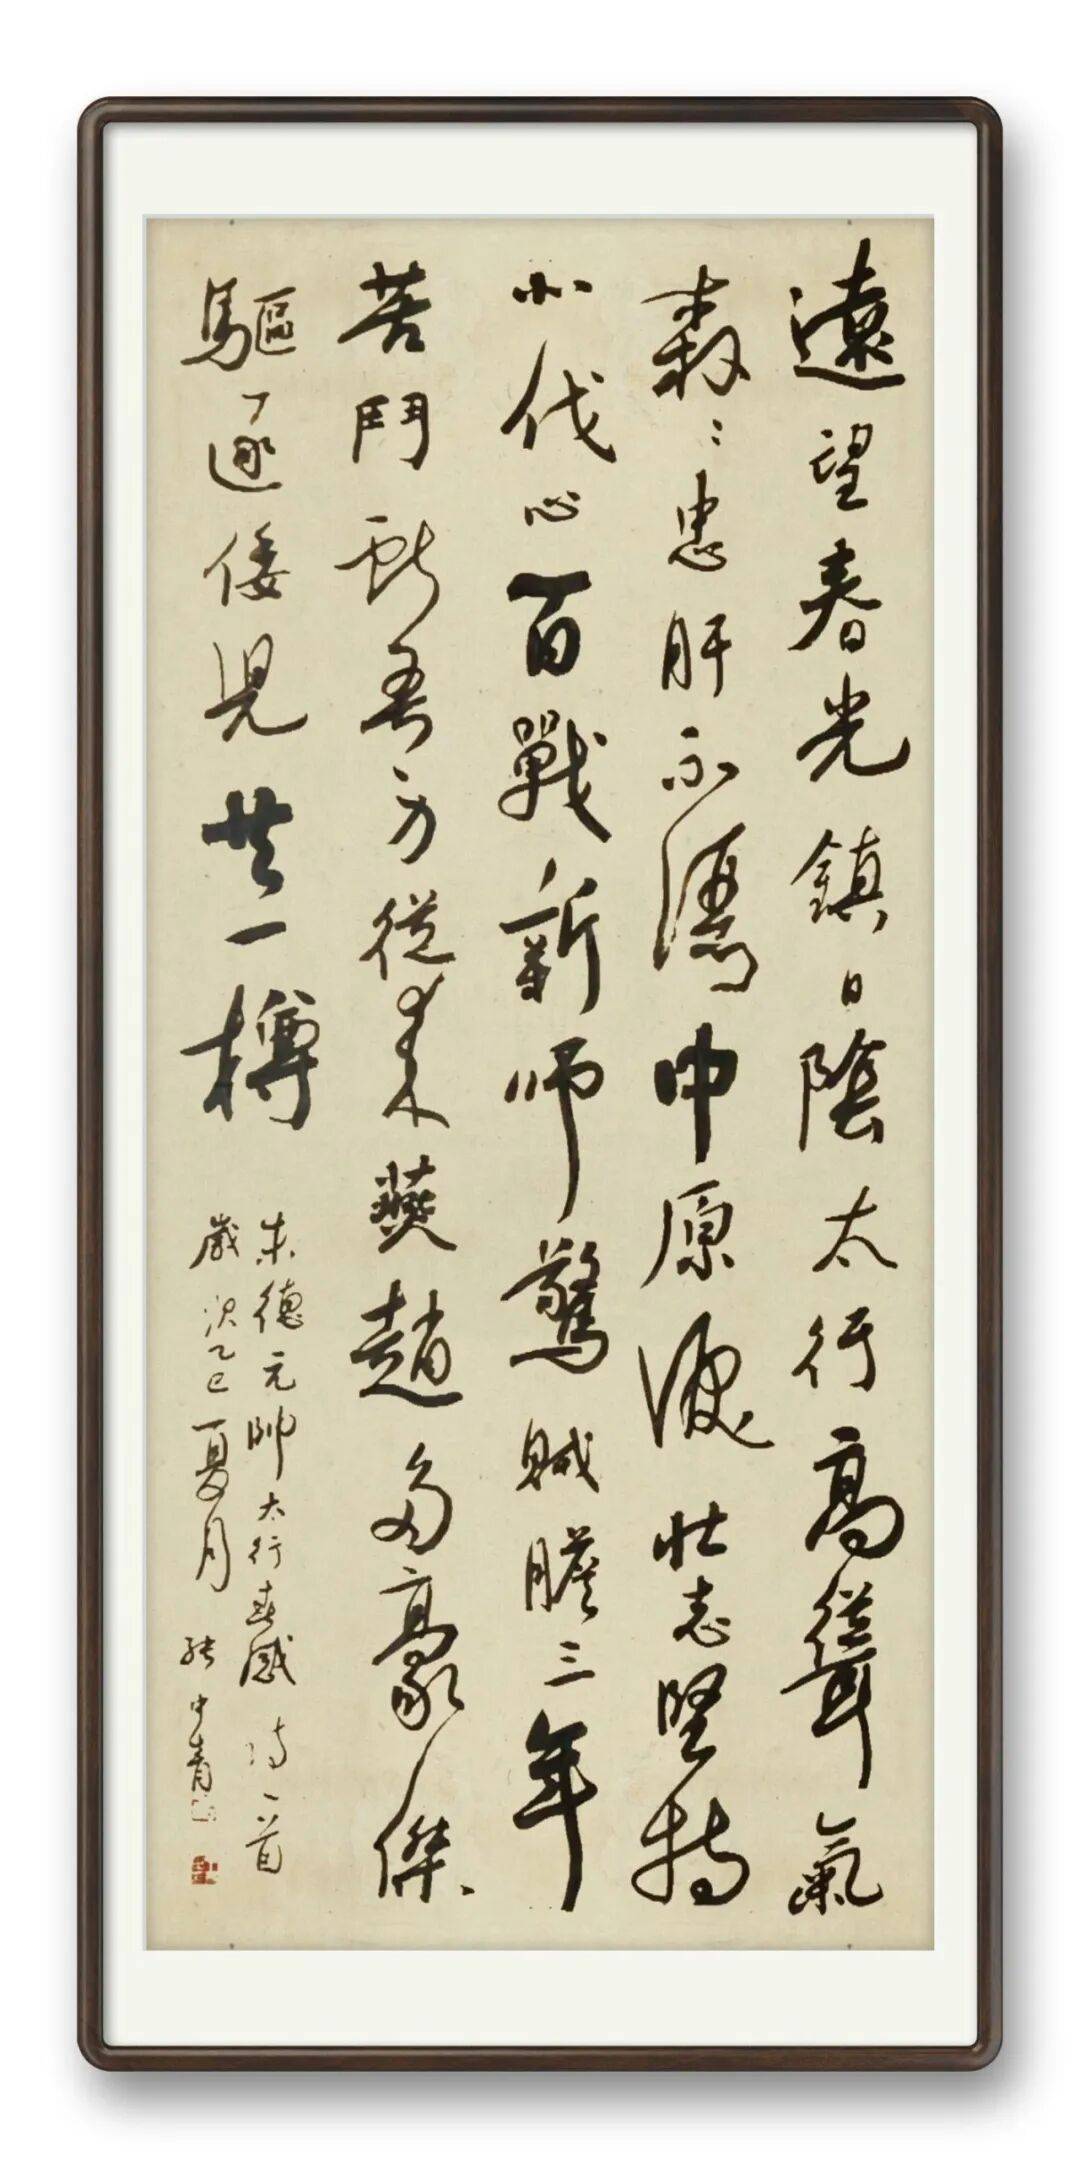 遠望春光鎮日陰太行高聳氣
森〻忠肝不灑中原淚壯志堅持
北伐心百戰新師驚賊膽三年
苦鬥獻吾身從来燕趙多豪傑
驅逐倭児共一樽
朱德元帥太行春感詩一首
歲次乙巳夏月 张中青